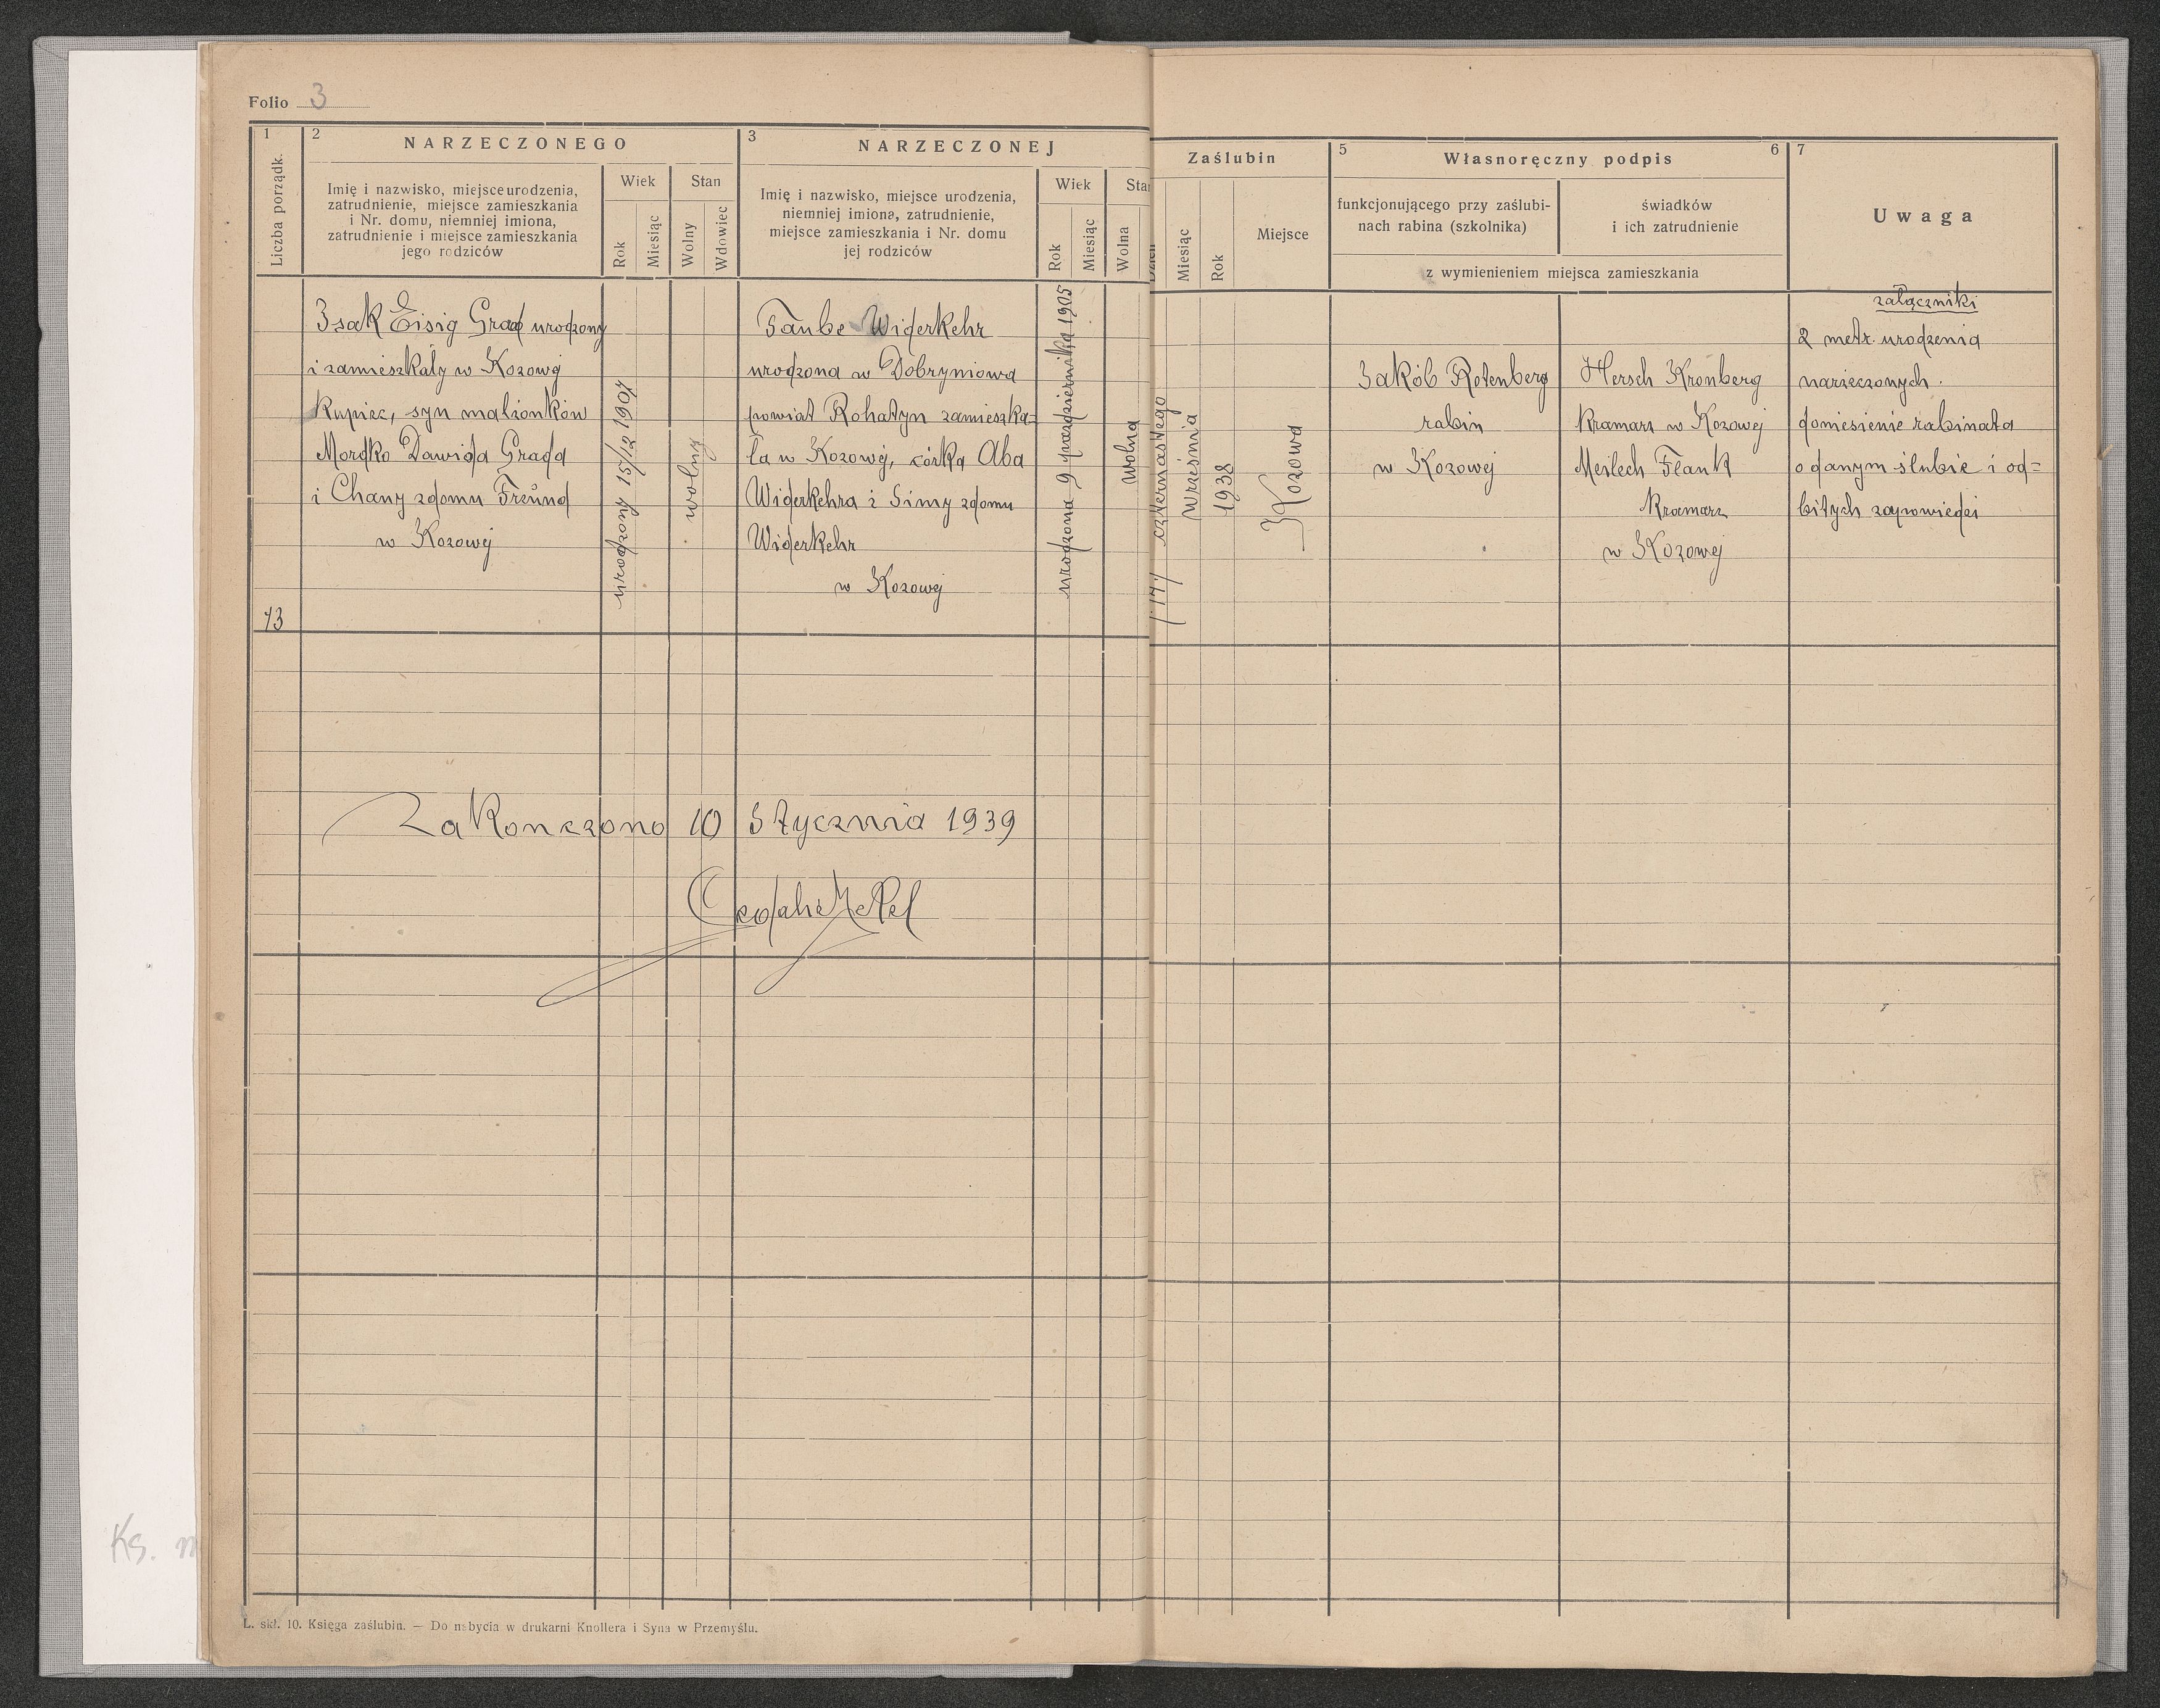 Folio 3
1
Liczba porządk.
2
NARZECZONEGO
Imię i nazwisko, miejsce urodzenia,
zatrudnienie, miejsce zamieszkania
i Nr. domu, niemniej imiona,
zatrudnienie i miejsce zamieszkania
jego rodziców
Wiek
Rok
Miesiąc
Stan
Wolny
Wdowiec
3
NARZECZONEJ
Imię i nazwisko, miejsce urodzenia,
niemniej imiona, zatrudnienie,
miejsce zamieszkania i Nr. domu
jej rodziców
Wiek
Rok
Miesiąc
Stan
Wolna
Zaślubin
Dzień
Miesiąc
Rok
Miejsce
5
Własnoręczny podpis
6
funkcjonującego przy zaślubi-
nach rabina (szkolnika)
świadków
i ich zatrudnienie
z wymienieniem miejsca zamieszkania
7
Uwaga
13
Isak Eisig Grad urodzony
i zamieszkały w Kozowej
Kupiec, syn małżonków
Mordko Dawida Grada
i Chany zdomu Freund
w Kozowej
urodzony 15/12 1904
wolny
Taube Widerkehr
urodzona w Dobryniowa
powiat Rohatyn zamieszka-
ła w Kozowej, córka Aba
Widerkehra i Simy zdomu
Widerkehr
w Kozowej
urodzona 9 października 1905
wolna
czternastego
września
1938
Kozowa
Jakób Rotenberg
rabin
w Kozowej
Hersch Kronberg
Kramarz w Kozowej
Meilech Flank
Kramarz
w Kozowej
załączniki
2 metr. urodzenia
narzeczonych.
doniesienie rabinata
o danym ślubie i od=
bitych zapowiedzi
Zakonczono 10 Stycznia 1939
L. skł. 10. Księga zaślubin. — Do nabycia w drukarni Knollera i Syna w Przemyślu.
Ks. m